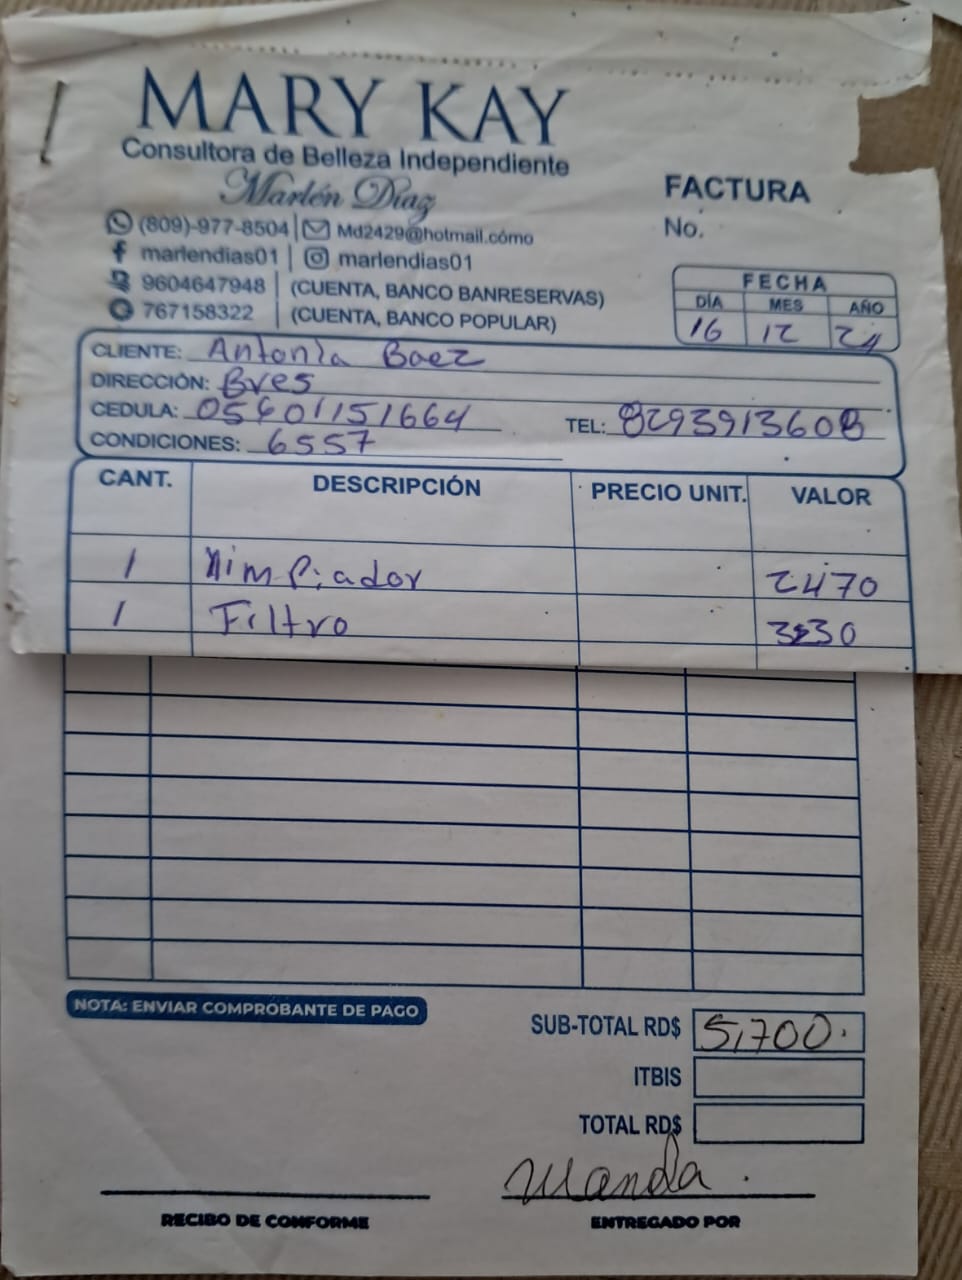 MARY KAY
Consultora de Belleza Independiente
Marlén Díaz
(809)-977-8504 | Md2429@hotmail.cómo
marlendias01 | marlendias01
9604647948 | (CUENTA, BANCO BANRESERVAS)
767158322 | (CUENTA, BANCO POPULAR)
FACTURA
No.
FECHA
DÍA MES AÑO
16 12 24
CLIENTE: Antonia Baez
DIRECCIÓN: Bves
CEDULA: 05601151664 TEL: 8293913608
CONDICIONES: 6557
CANT. DESCRIPCIÓN PRECIO UNIT. VALOR
1 Limpiador 2470
1 Filtro 3230
NOTA: ENVIAR COMPROBANTE DE PAGO
SUB-TOTAL RD$ 5,700.
ITBIS
TOTAL RD$
RECIBO DE CONFORME ENTREGADO POR